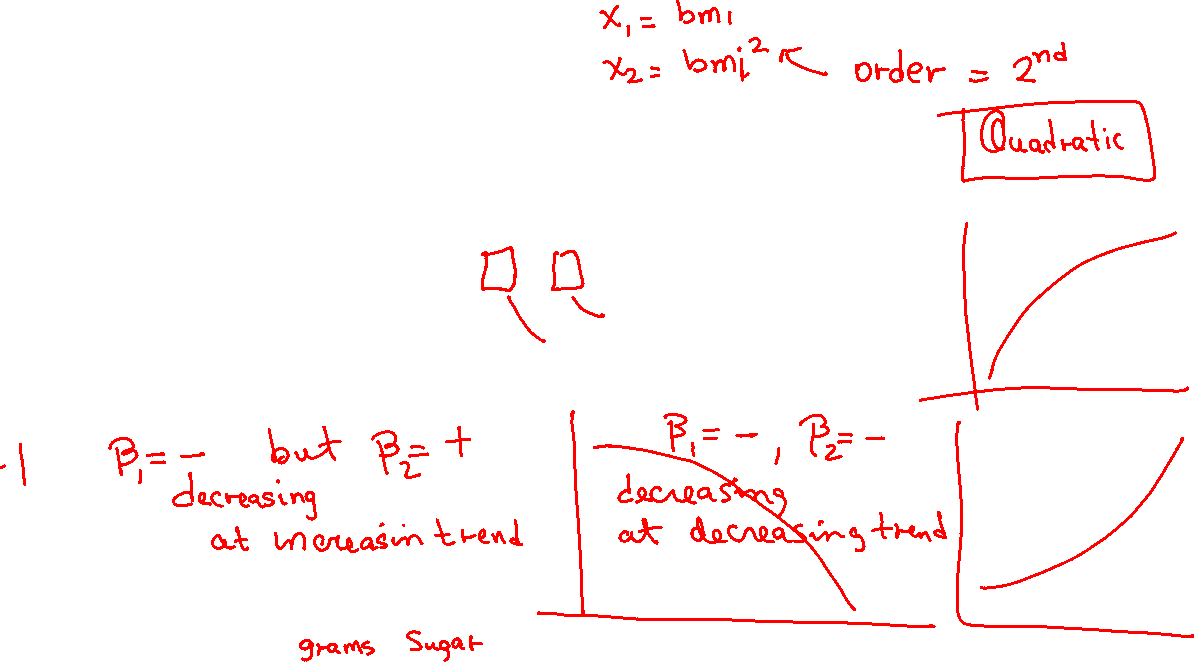 x₁ = bmi
x₂ = bmi² order = 2nd
Quadratic
-1 β₁ = - but β₂ = +
decreasing
at increasin trend
β₁ = -, β₂ = -
decreasing
at decreasing trend
grams Sugar